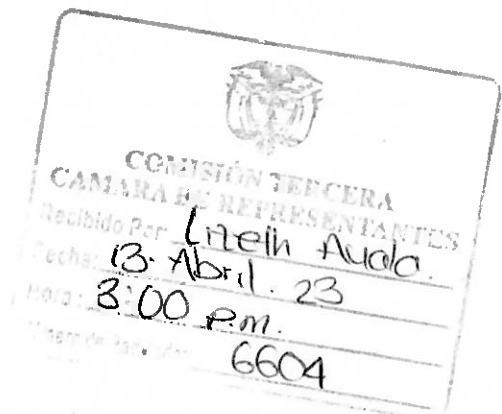 COMISIÓN TERCERA
CAMARA DE REPRESENTANTES
Recibido Por: Lizeth Ayala.
Fecha: 13. Abril. 23
Hora: 3:00 p.m.
6604